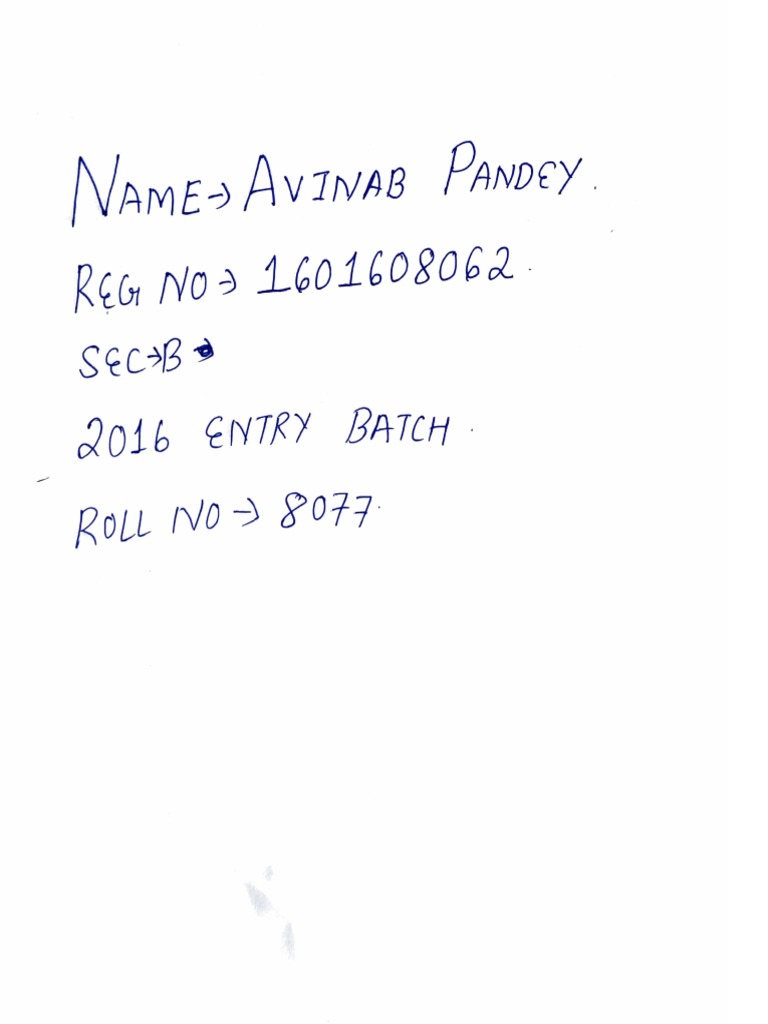 NAME→ AVINAB PANDEY.
REG NO→ 1601608062.
SEC→B
2016 ENTRY BATCH.
ROLL NO→ 8077.